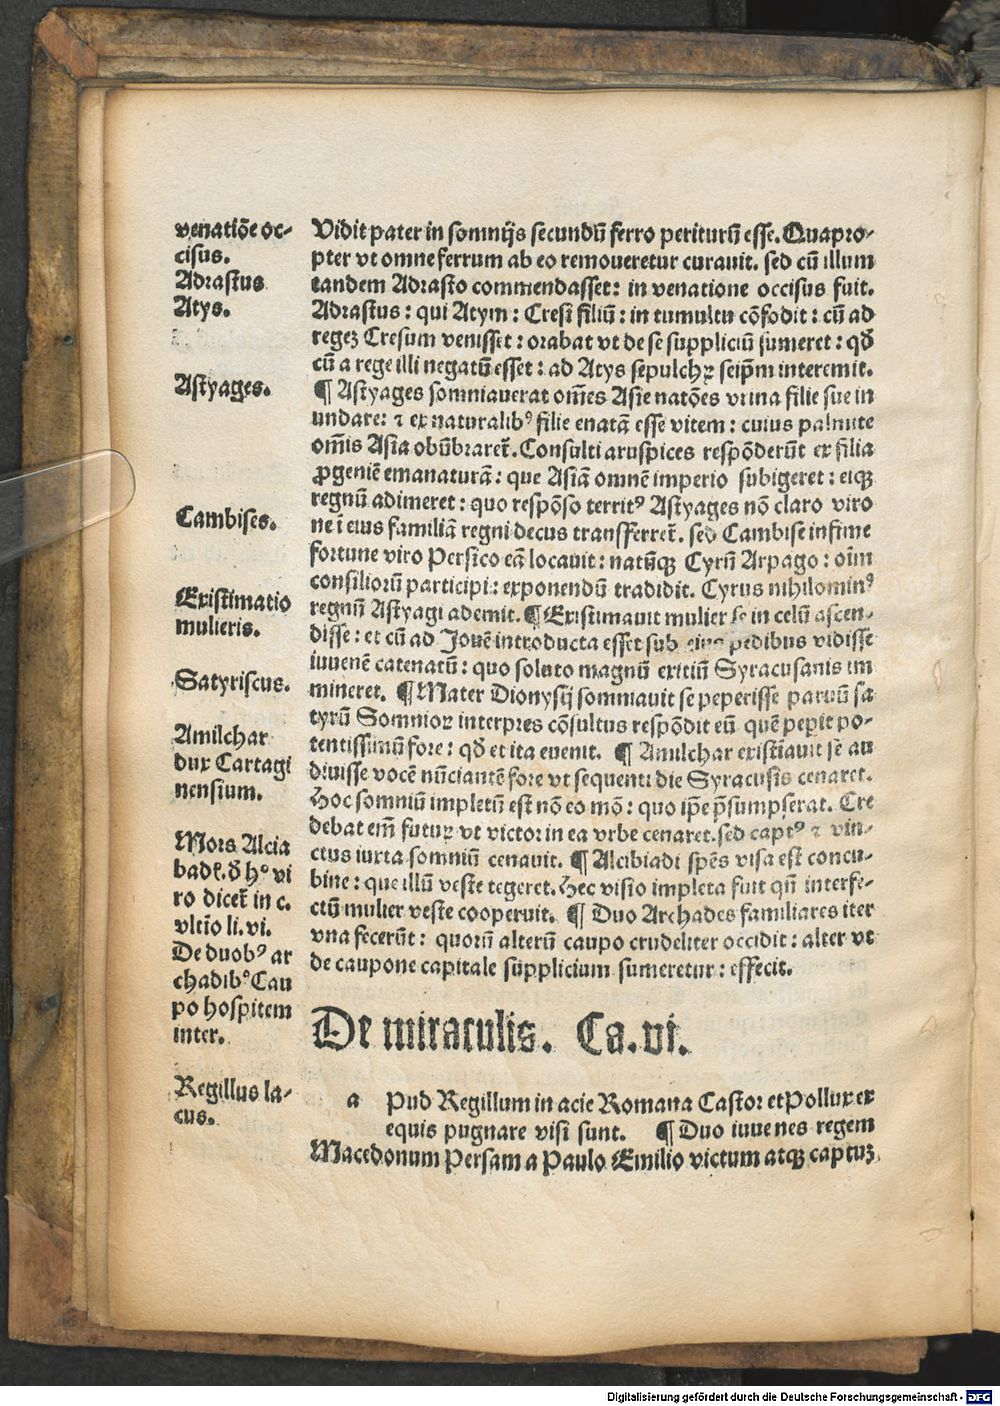 venatiōe oc-
cisus.
Adrastus
Atys.
Astyages.
Cambises.
Existimatio
mulieris.
Satyriscus.
Amilchar
dux Cartagi
nensium.
Mors Alcia
bad. đ hꝰ vi
ro dicet̄ in c.
vltīo li. vi.
De duobꝰ ar
chadibꝰ Cau
po hospitem
inter.
Regillus la-
cus.
Vidit pater in somnijs secundū ferro periturū esse. Quapro-
pter vt omne ferrum ab eo remoueretur curauit. sed cū illum
tandem Adrasto commendasset: in venatione occisus fuit.
Adrastus: qui Atym: Cresi filiū: in tumultu cōfodit: cū ad
regeꝫ Cresum venisset: orabat vt de se suppliciū sumeret: qđ
cū a rege illi negatū esset: ad Atys sepulchꝝ seip̄m interemit.
¶ Astyages somniauerat om̄es Asie natōes vrina filie sue in
undare: ⁊ ex naturalibꝰ filie enatā esse vitem: cuius palmite
om̄is Asia obūbraret̄. Consulti aruspices respōderūt ex filia
ꝓgeniē emanaturā: que Asiā omnē imperio subigeret: eiqꝫ
regnū adimeret: quo respōso territꝰ Astyages nō claro viro
ne ī eius familiā regni decus transfferret̄. sed Cambise infime
fortune viro Persico eā locauit: natūqꝫ Cyrū Arpago: oīm
consiliorū participi: exponendū tradidit. Cyrus nihilominꝰ
regnū Astyagi ademit. ¶ Existimauit mulier se in celū ascen-
disse: et cū ad Jouē introducta esset sub eius pedibus vidisse
iuuenē catenatū: quo soluto magnū exitiū Syracusanis im
mineret. ¶ Mater Dionysij somniauit se peperisse paruū sa
tyrū Somnioꝝ interpres cōsultus respōdit eū quē peꝑit po-
tentissimū fore: qđ et ita euenit. ¶ Amilchar existīauit se au
diuisse vocē nūciantē fore vt sequenti die Syracusis cenaret.
Hoc somniū impletū est nō eo mō: quo ip̄e p̄sumpserat. Cre
debat em̄ futuꝝ vt victor in ea vrbe cenaret. sed captꝰ ⁊ vin-
ctus iuxta somniū cenauit. ¶ Alcibiadi spēs visa est concu-
bine: que illū veste tegeret. Hec visio impleta fuit qn̄ interfe-
ctū mulier veste cooperuit. ¶ Duo Archades familiares iter
vna fecerūt: quorū alterū caupo crudeliter occidit: alter vt
de caupone capitale supplicium sumeretur: effecit.
De miraculis. Ca.vi.
a Pud Regillum in acie Romana Castor et Pollux ex
equis pugnare visi sunt. ¶ Duo iuuenes regem
Macedonum Persam a Paulo Emilio victum atqꝫ captuꝫ
Digitalisierung gefördert durch die Deutsche Forschungsgemeinschaft - DFG